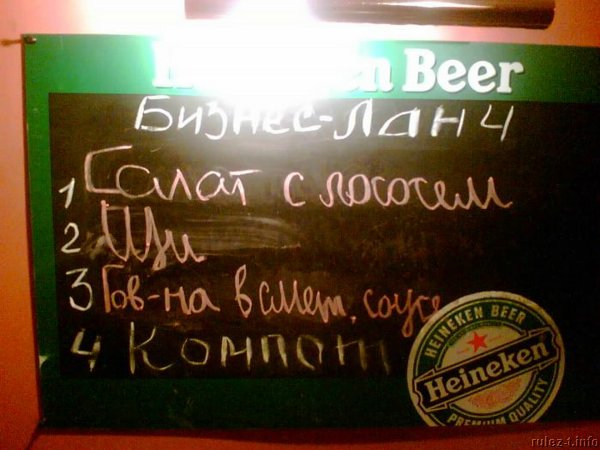 Heineken Beer
Бизнес-Ланч
1 Салат с лососем
2 Щи
3 Гов-на в смет. соусе
4 Компот
HEINEKEN BEER
Heineken
PREMIUM QUALITY
rulez-t.info